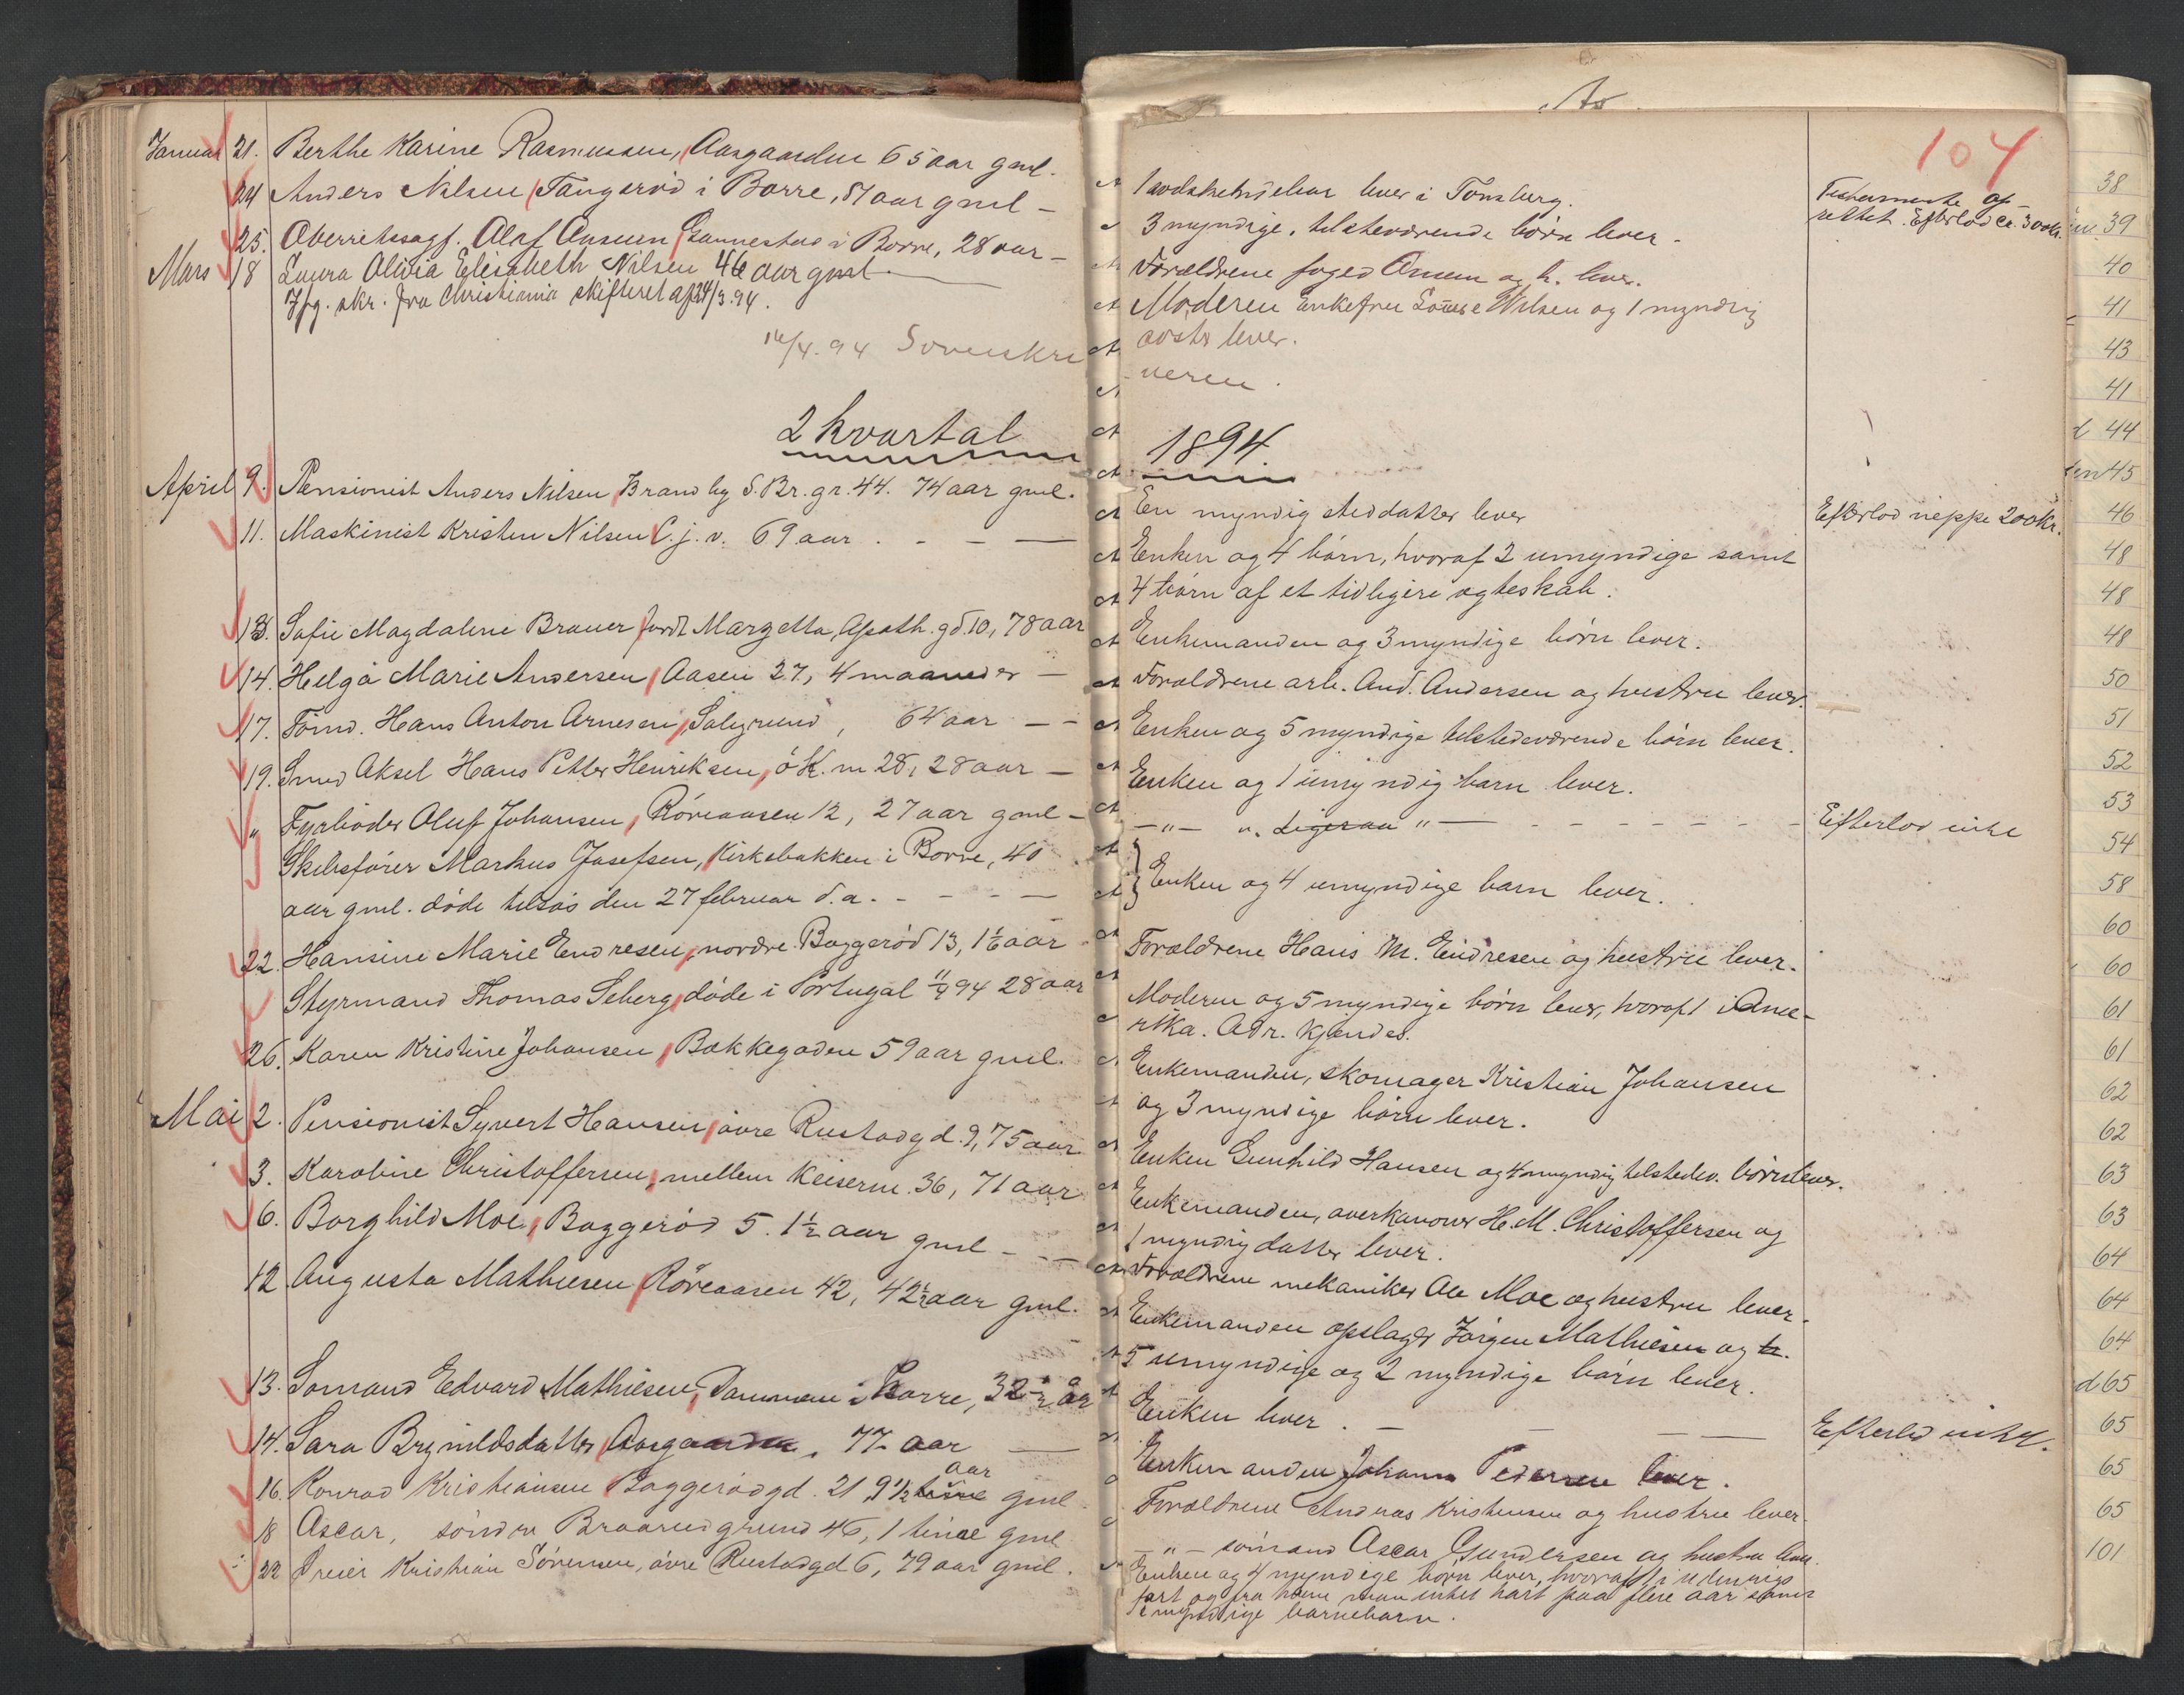 Januar 21. Berthe Karine Rasmussen, Aasgaarden 65 aar gml.
24 Anders Nilsen, Tangerød i Borre, 81 aar gml -
25. Overretssagf. Olaf Ansen, Gannestad i Borre, 28 aar -
Mars 18 Laura Olivia Elisabeth Nilsen 46 aar gml
Ifg. skr. fra Christiania skifteret af 24/3.94.
16/4.94
2 kvartal
April 9. Pensionist Anders Nilsen, Brandbg S. Br. gr. 44. 74 aar gml.
11. Maskinist Kristen Nilsen C. j. v. 69 aar
13. Sofie Magdalene Brauer født Margetta, Apoth. gd. 10, 78 aar
14. Helga Marie Andersen, Aasen 27, 4 maaneder -
17. Tømd. Hans Anton Arnesen, Solgrund, 64 aar - -
19. Smed Aksel Hans Petter Henriksen, ö K. m 28, 28 aar -
" Fyrbøder Oluf Johansen, Røreaasen 12, 27 aar gml -
Skibsfører Markus Josefsen, Kirkebakken i Borre, 40
aar gml. døde tilsøs den 27 februar d. a. - - - -
22. Hansine Marie Endresen, nordre Baggerød 13, 1 1/6 aar
Styrmand Thomas Seberg, døde i Portugal 11/4 94 28 aar
26. Karen Kristine Johansen, Bakkegaden 59 aar gml.
Mai 2. Pensionist Syvert Hansen, øvre Rustadgd. 9, 75 aar
3. Karoline Christoffersen, mellem Keiserm. 36, 71 aar
6. Borghild Moe, Baggerød 5. 1 1/2 aar gml - - -
12 Augusta Mathiesen, Røreaasen 42, 42 1/2 aar gml.
13. Sømand Edvard Mathiesen, Dammen i Borre, 32 1/2 år
14. Sara Brynildsdatter, Aasgaarden, 77 aar
aar
16. Konrad Kristiansen Baggerødgd. 21, 9 1/2 time gml
18 Ascar, søndre Braarudgrund 46, 1 time gml
22 Kristian Sørensen, øvre Rustadgd 6, 79 aar gml.
104
lever i Tønsberg.
3 myndige, tilstedeværende børn lever.
Forældrene foged Ansen og h. lever.
Moderen Enkefru Lovise Nilsen og 1 myndig
søster lever.
1894
En myndig steddatter lever
Enken og 4 børn, hvoraf 2 umyndige samt
4 børn af et tidligere ægteskab.
Enkemanden og 3 myndige børn lever.
Forældrene arb. And. Andersen og hustru lever.
Enken og 5 myndige tilstedeværende børn lever.
Enken og 1 umyndig barn lever.
- " - ". Ligesaa " -
Enken og 4 umyndige barn lever.
Forældrene Hans M. Endresen og hustru lever.
Moderen og 5 myndige børn lever, hvoraf 1 i Ame-
rika. Adr. kjendes.
Enkemanden, skomager Kristian Johansen
og 3 myndige børn lever.
Enken Gunhild Hansen og 4 myndig tilstedev. børn lever.
Enkemanden, overkanoner H. M. Christoffersen og
1 myndig datter lever.
Forældrene mekaniker Ole Moe og hustru lever.
Enkemanden opslager Jørgen Mathiesen og
5 umyndige og 2 myndige børn lever.
Enken lever. -
Enkemanden Johann Pedersen lever.
Forældrene Andreas Kristensen og hustru lever.
- " - sømand Ascar Gundersen og hustru
Enken og 4 myndige børn lever, hvoraf 1 i udenrigs
fart og fra hvem man intet hørt paa flere aar samt
myndige barnebarn.
Testamente op-
rettet. Efterlod ca. 300 kr.
Efterlod neppe 200 kr.
Efterlod intet
Efterlod intet.
38
39
40
41
43
41
44
45
46
48
48
48
50
51
52
53
54
58
60
60
61
61
62
62
63
63
64
64
64
65
65
65
65
101